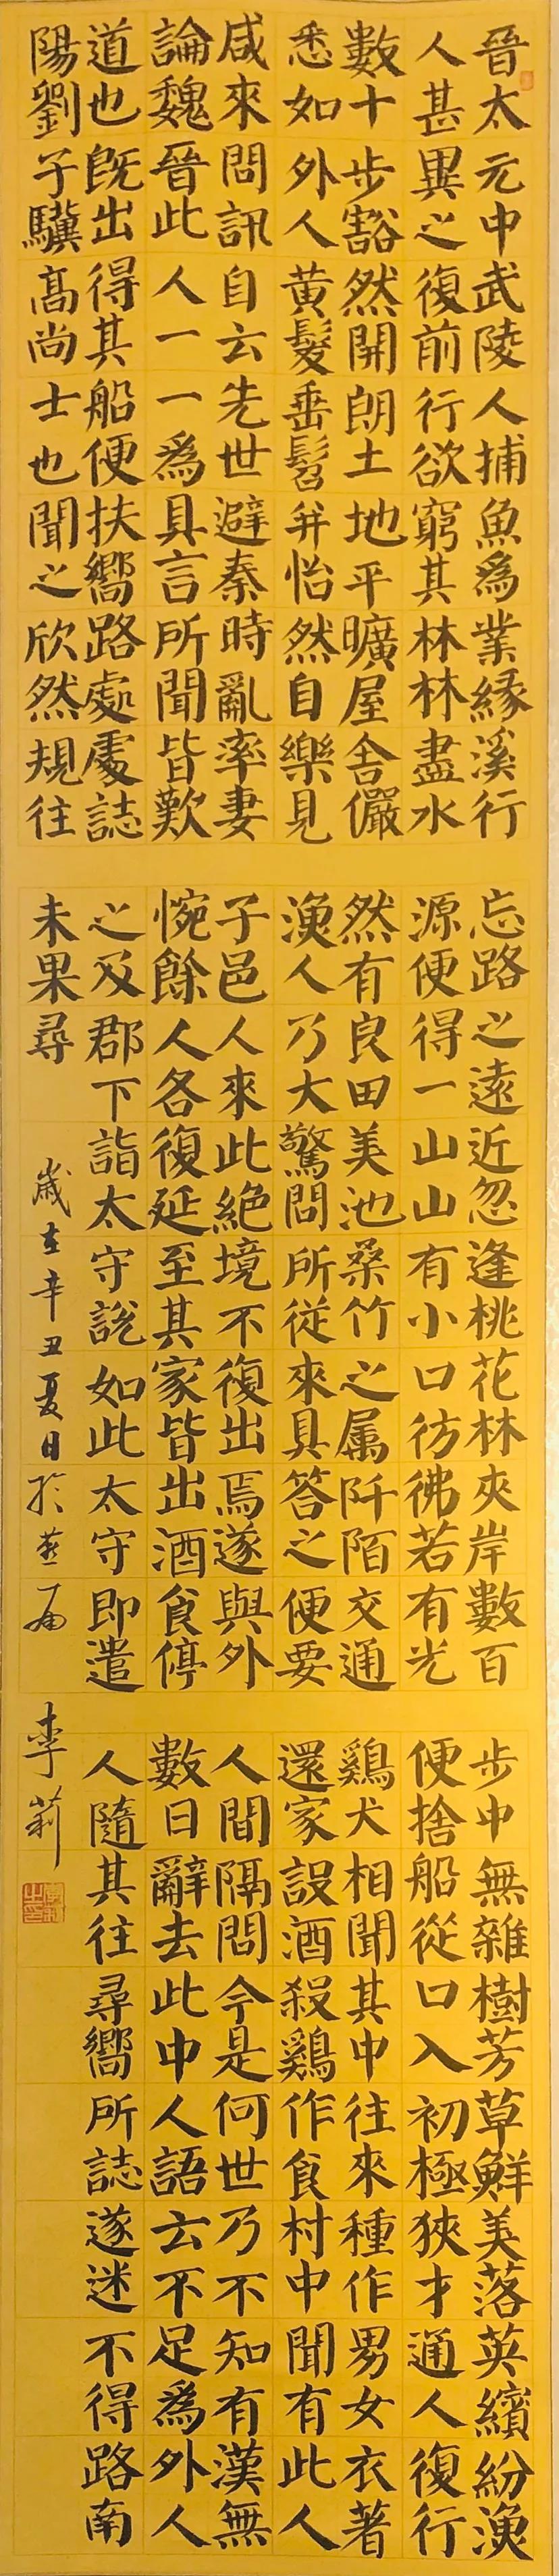 晉太元中武陵人捕魚爲業緣溪行忘路之遠近忽逢桃花林夾岸數百步中無雜樹芳草鮮美落英繽紛漁
人甚異之復前行欲窮其林林盡水源便得一山山有小口彷彿若有光便捨船從口入初極狹才通人復行
數十步豁然開朗土地平曠屋舍儼然有良田美池桑竹之属阡陌交通鷄犬相聞其中往來種作男女衣著
悉如外人黃髮垂髫并怡然自樂見漁人乃大驚問所從來具答之便要還家設酒殺鷄作食村中聞有此人
咸來問訊自云先世避秦時亂率妻子邑人來此絕境不復出焉遂與外人間隔問今是何世乃不知有漢無
論魏晉此人一一爲具言所聞皆歎惋餘人各復延至其家皆出酒食停數日辭去此中人語云不足爲外人
道也既出得其船便扶嚮路處處誌之及郡下詣太守說如此太守即遣人隨其往尋嚮所誌遂迷不得路南
陽劉子驥高尚士也聞之欣然規往未果尋
歲在辛丑夏日於燕
李莉